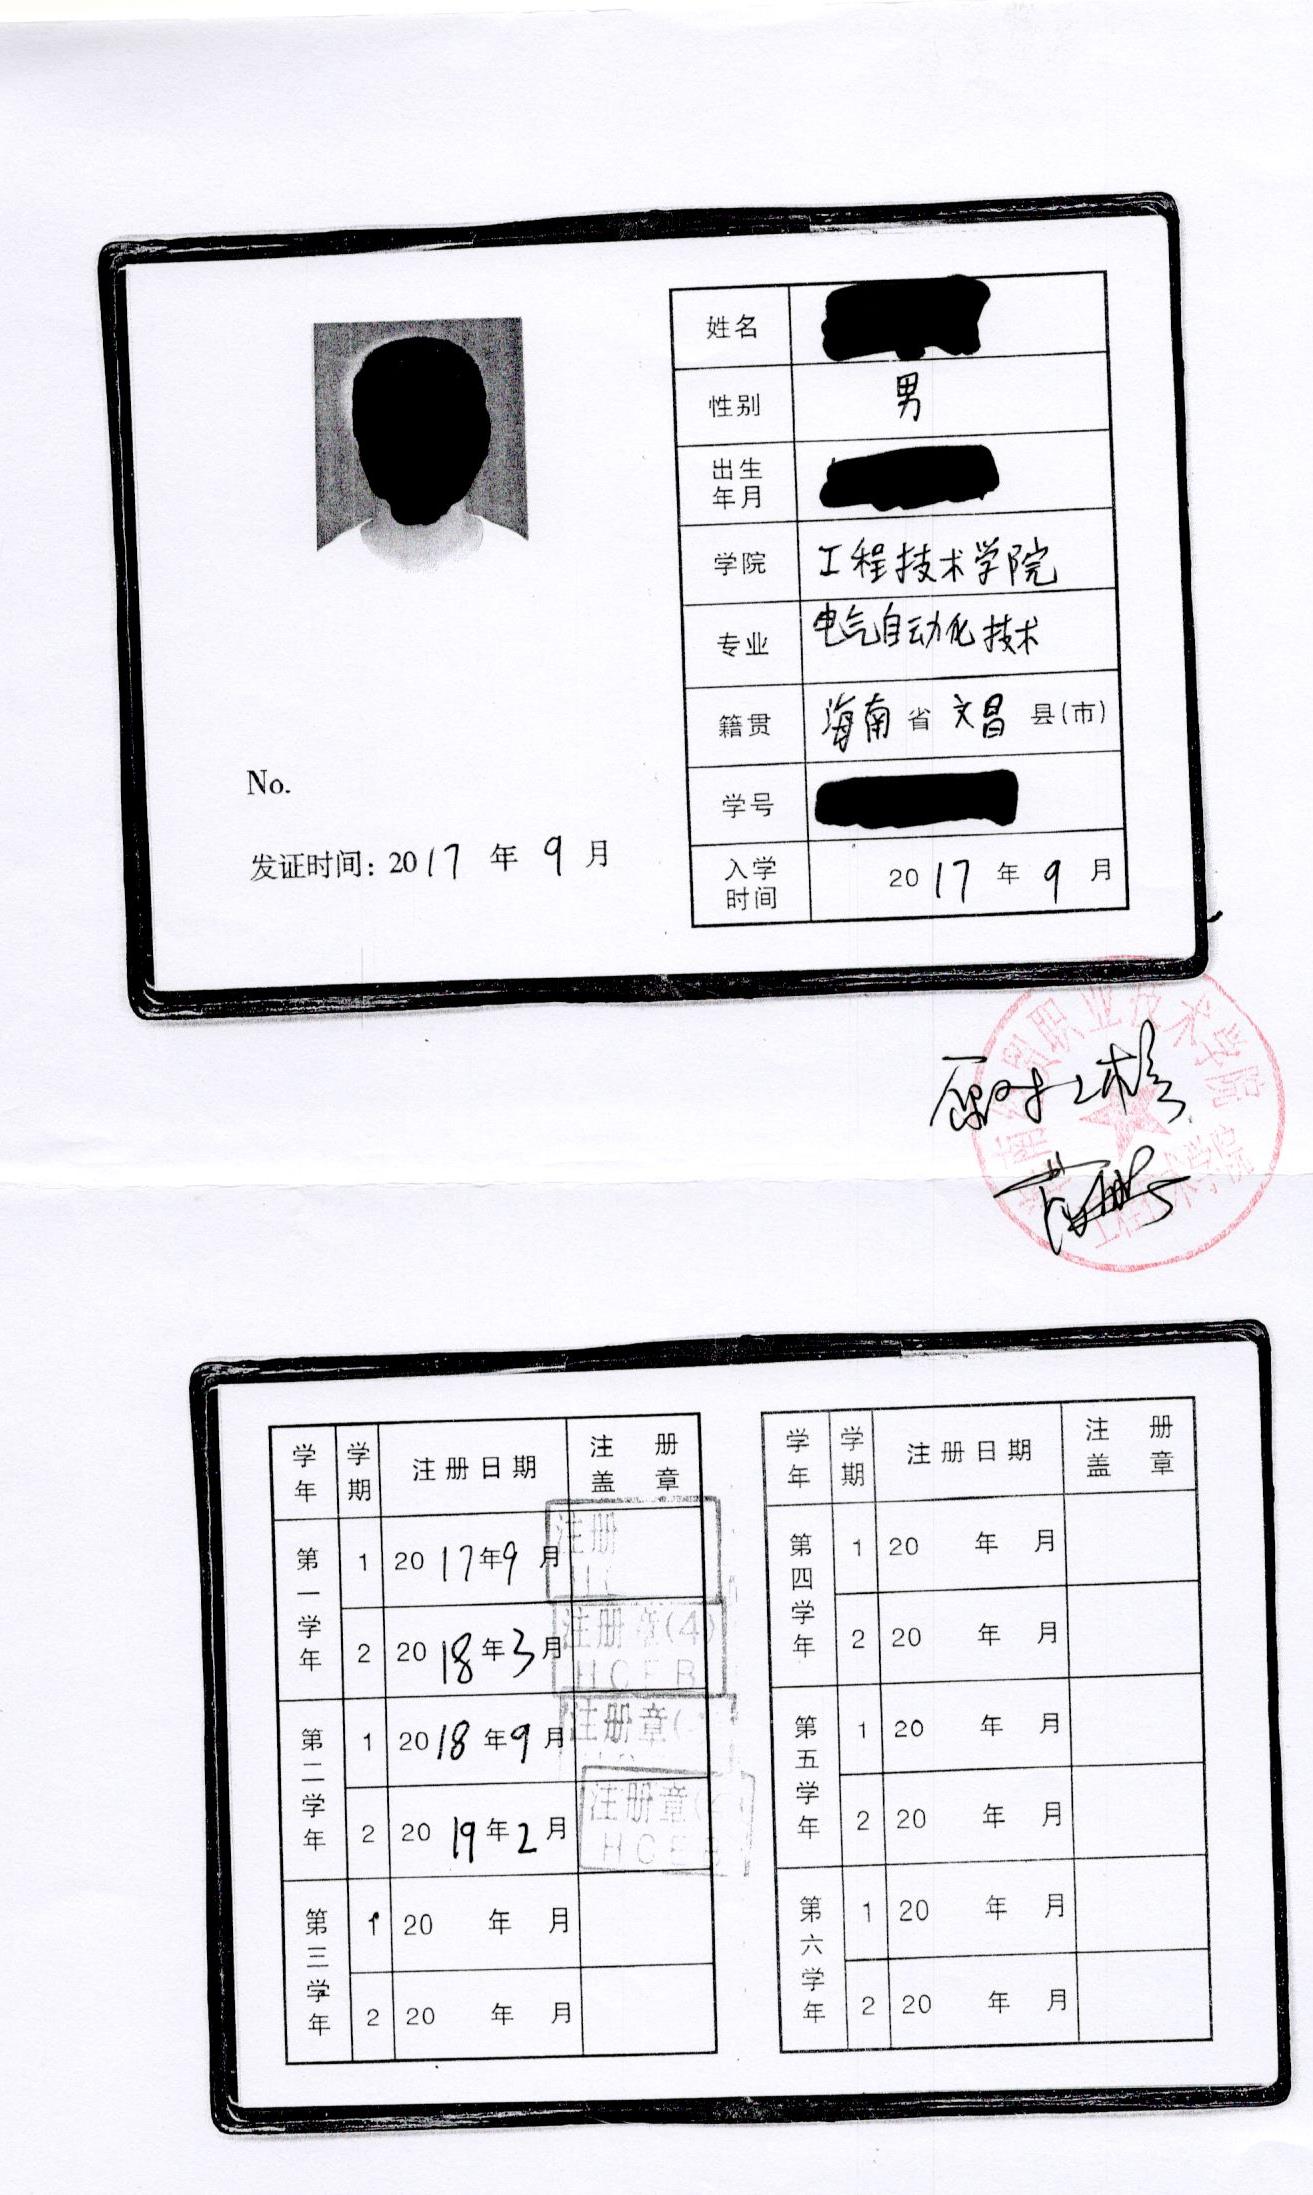 姓名
性别 男
出生年月
学院 工程技术学院
专业 电气自动化技术
籍贯 海南省 文昌 县(市)
学号
入学时间 2017年9月
No.
发证时间: 2017年9月
职业技术学院
学年 学期 注册日期 注册盖章
第一学年 1 2017年9月 注册
2 2018年3月 注册章(4) HCEB
第二学年 1 2018年9月 注册章(
2 2019年2月 注册章( HCEB
第三学年 1 20 年 月
2 20 年 月
学年 学期 注册日期 注册盖章
第四学年 1 20 年 月
2 20 年 月
第五学年 1 20 年 月
2 20 年 月
第六学年 1 20 年 月
2 20 年 月